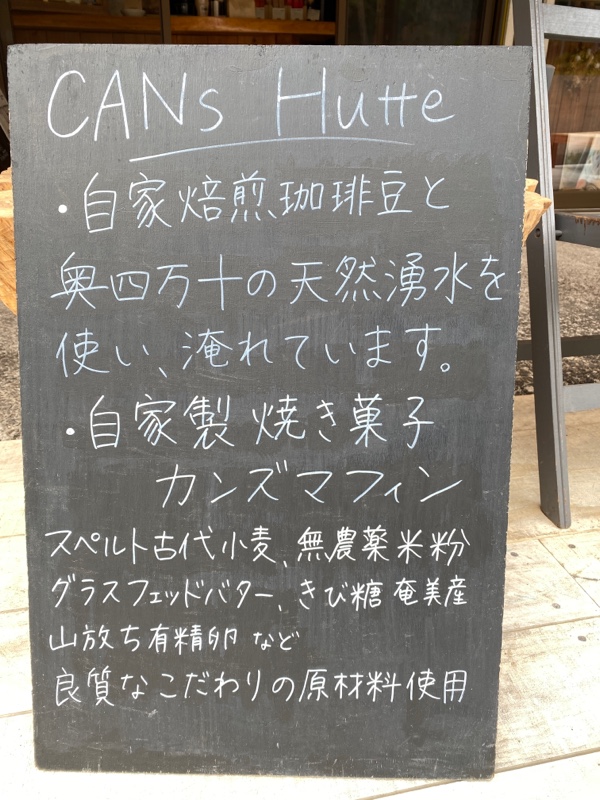 CANs Hutte
・自家焙煎珈琲豆と
奥四万十の天然湧水を
使い、淹れています。
・自家製 焼き菓子
カンズマフィン
スペルト古代小麦、無農薬米粉
グラスフェッドバター、きび糖 奄美産
山放ち有精卵 など
良質なこだわりの原材料使用